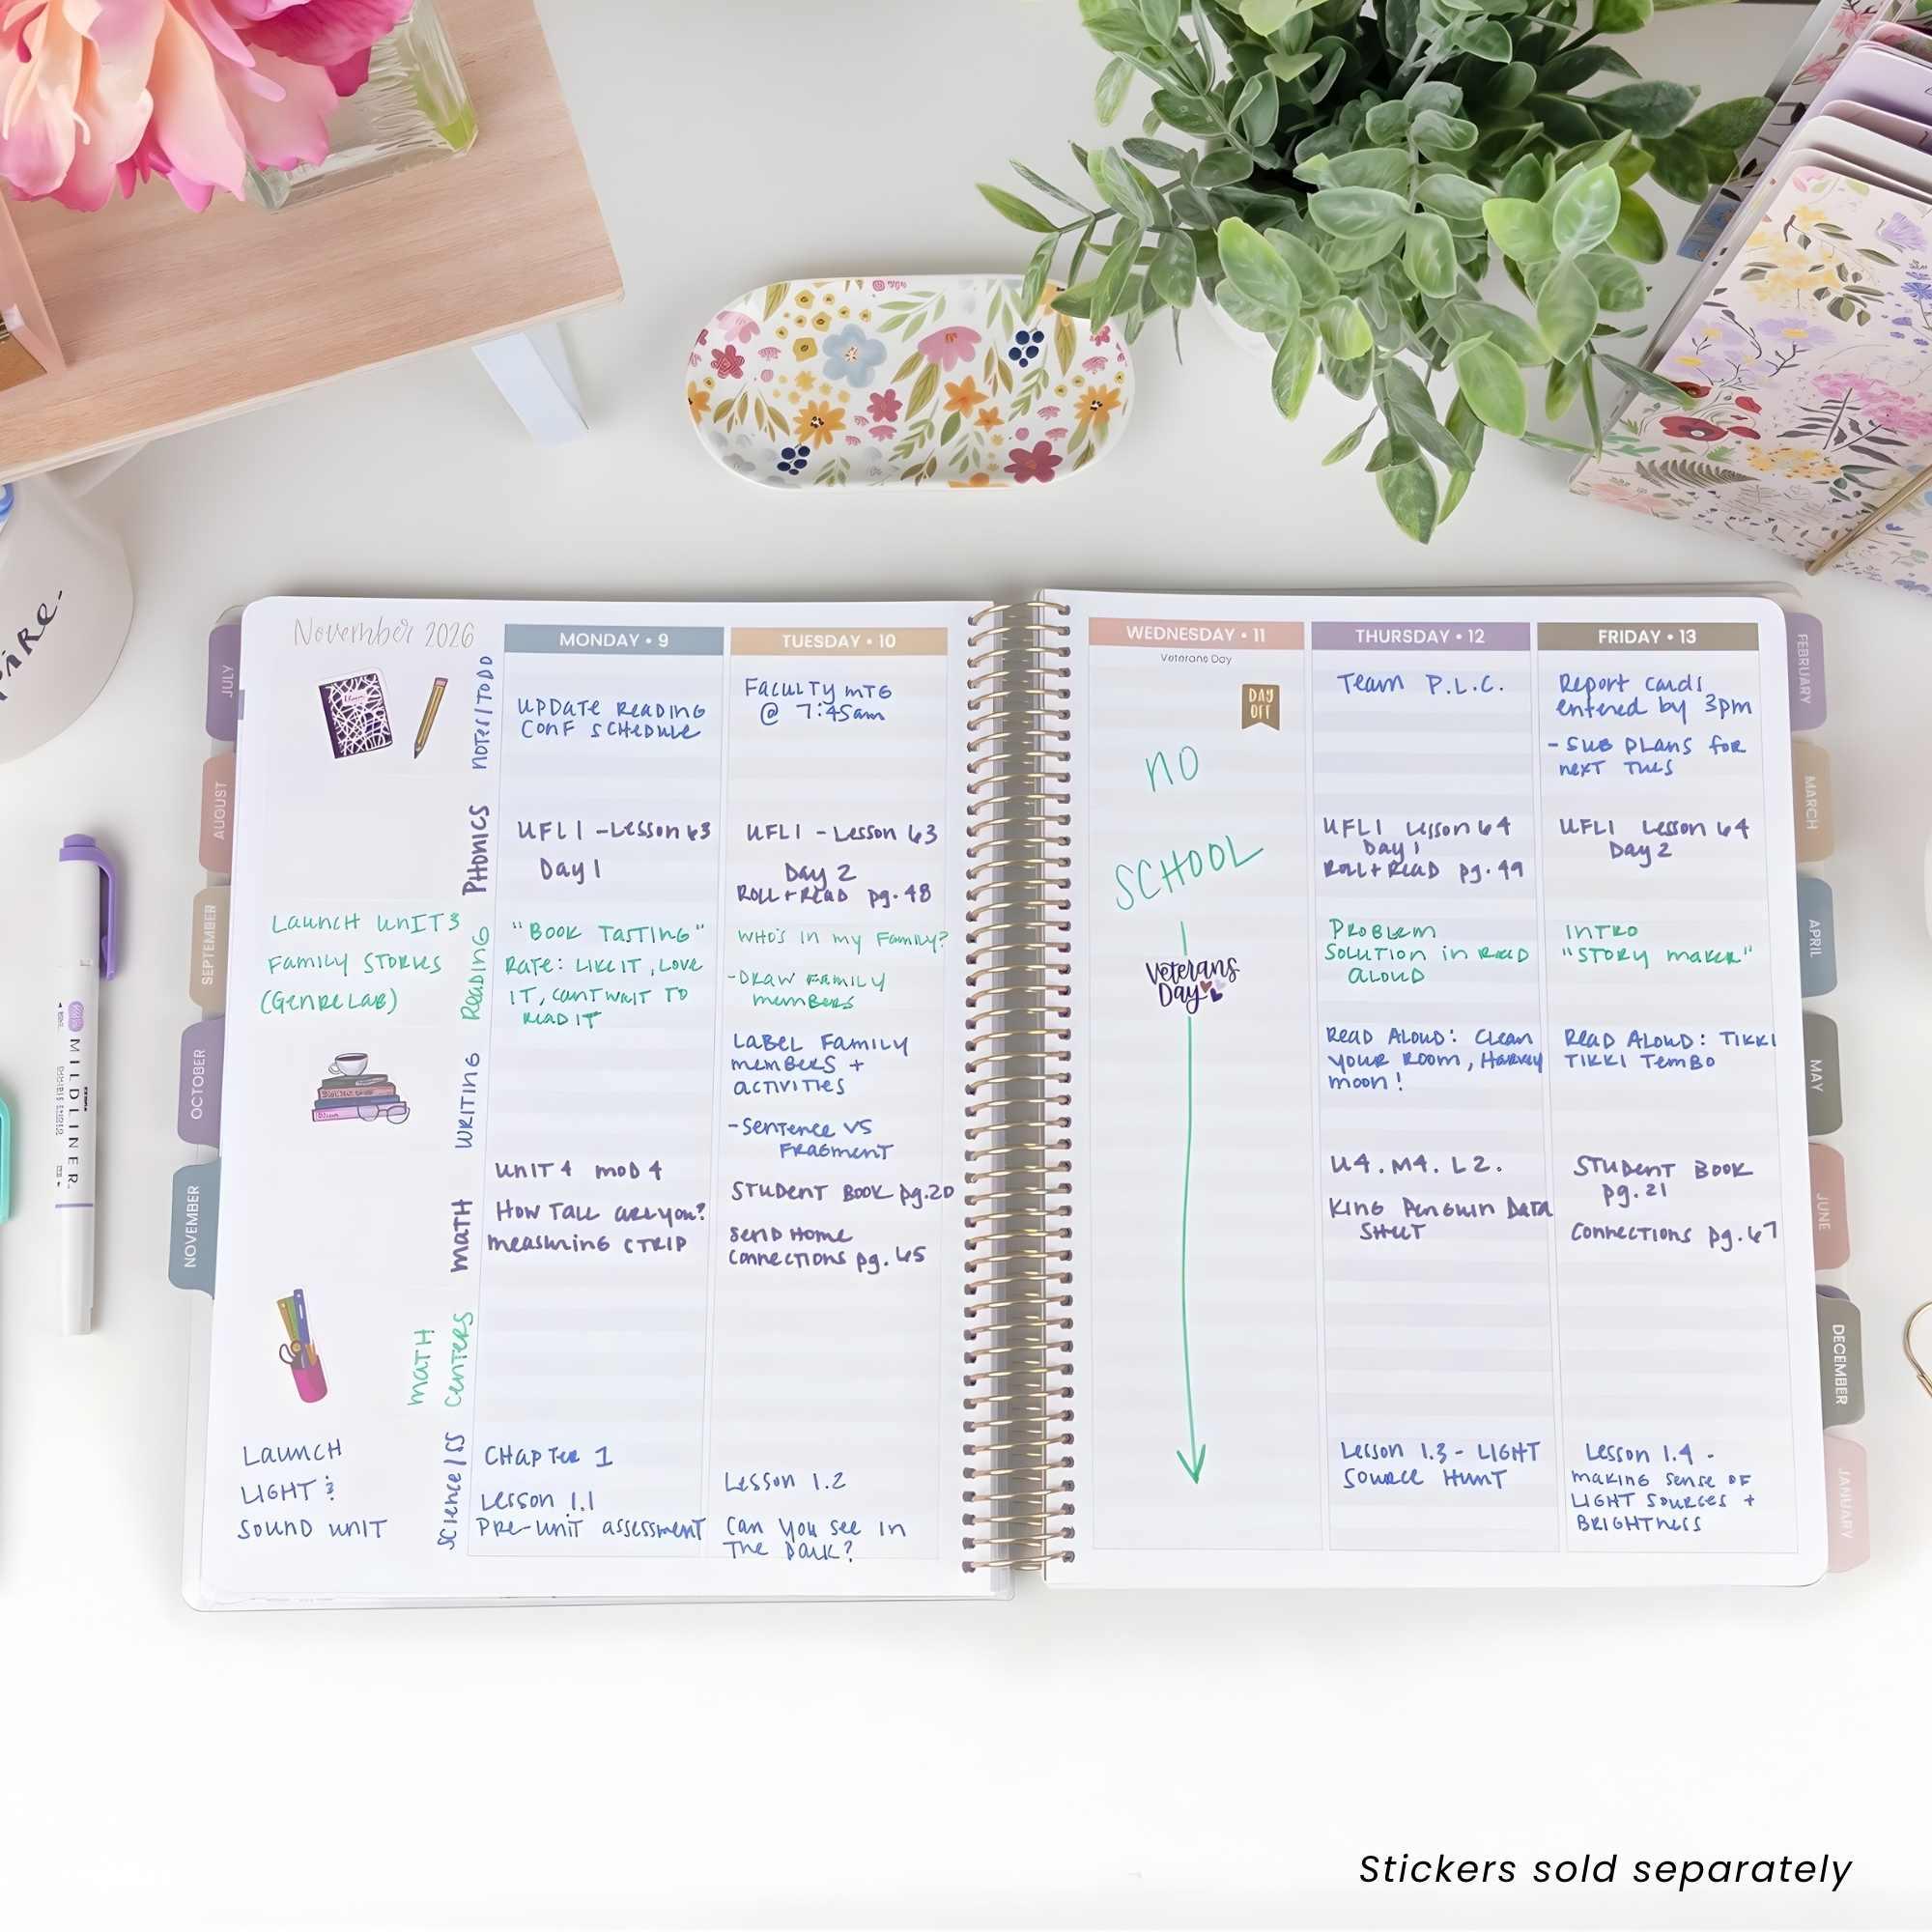 PARE.
MILDLINER
JULY
AUGUST
SEPTEMBER
OCTOBER
NOVEMBER
November 2026
NOTES/TODO
PHONICS
READING
WRITING
MATH
MATH
CENTERS
SCIENCE/SS
LAUNCH UNIT 3
FAMILY STORIES
(GENRE LAB)
LAUNCH
LIGHT &
SOUND UNIT
MONDAY • 9
UPDATE READING
CONF SCHEDULE
UFLI - Lesson 63
Day 1
"BOOK TASTING"
RATE: LIKE IT, LOVE
IT, CANT WAIT TO
READ IT
UNIT 4 MOD 4
HOW TALL ARE YOU?
MEASURING STRIP
CHAPTER 1
Lesson 1.1
PRE-UNIT ASSESSMENT
TUESDAY • 10
FACULTY MTG
@ 7:45am
UFLI - Lesson 63
Day 2
ROLL + READ pg. 48
WHO'S IN MY FAMILY?
-DRAW FAMILY
MEMBERS
LABEL FAMILY
MEMBERS +
ACTIVITIES
-SENTENCE VS
FRAGMENT
STUDENT BOOK pg. 20
SEND HOME
CONNECTIONS pg. 65
Lesson 1.2
CAN YOU SEE IN
THE DARK?
WEDNESDAY • 11
Veterans Day
DAY
OFF
NO
SCHOOL
Veterans
Day
THURSDAY • 12
TEAM P.L.C.
UFLI Lesson 64
Day 1
ROLL + READ pg. 49
PROBLEM
SOLUTION IN READ
ALOUD
READ ALOUD: CLEAN
YOUR ROOM, HARVEY
MOON!
U4. M4. L2.
KING PENGUIN DATA
SHEET
Lesson 1.3 - LIGHT
SOURCE HUNT
FRIDAY • 13
Report cards
entered by 3pm
- SUB PLANS FOR
NEXT TUES
UFLI Lesson 64
Day 2
INTRO
"STORY MAKER"
READ ALOUD: TIKKI
TIKKI TEMBO
STUDENT BOOK
pg. 21
CONNECTIONS pg. 67
Lesson 1.4 -
MAKING SENSE OF
LIGHT SOURCES +
BRIGHTNESS
FEBRUARY
MARCH
APRIL
MAY
JUNE
DECEMBER
JANUARY
Stickers sold separately